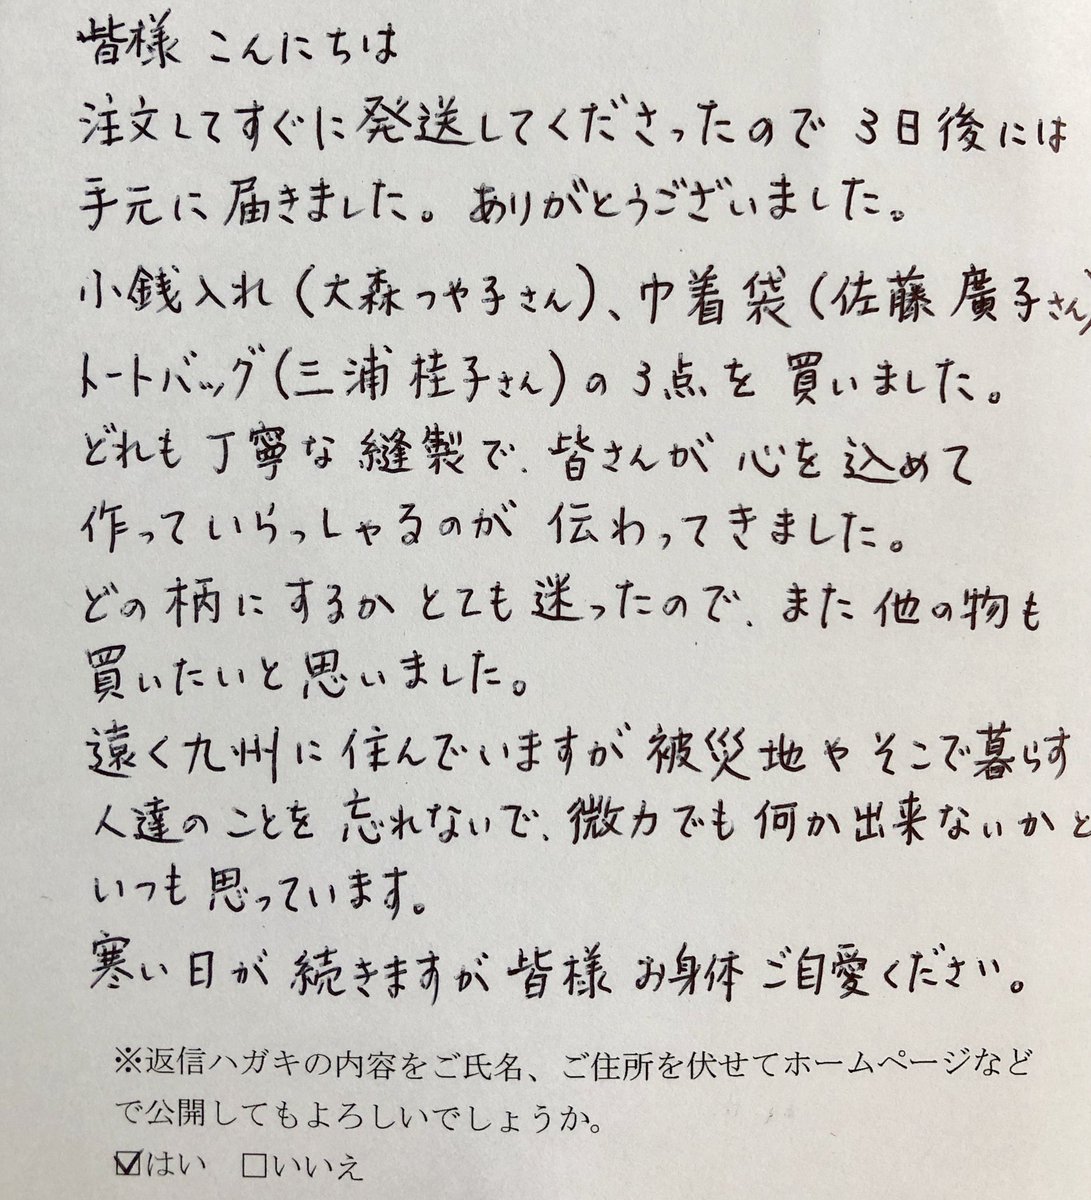 皆様 こんにちは
注文してすぐに発送してくださったので 3日後には
手元に届きました。ありがとうございました。
小銭入れ(大森つや子さん)、巾着袋(佐藤 廣子さん)
トートバッグ(三浦 桂子さん)の3点を買いました。
どれも丁寧な縫製で、皆さんが心を込めて
作っていらっしゃるのが伝わってきました。
どの柄にするかとても迷ったので、また他の物も
買いたいと思いました。
遠く九州に住んでいますが被災地やそこで暮らす
人達のことを忘れないで、微力でも何か出来ないかと
いつも思っています。
寒い日が続きますが皆様お身体ご自愛ください。
※返信ハガキの内容をご氏名、ご住所を伏せてホームページなど
で公開してもよろしいでしょうか。
☑はい □いいえ